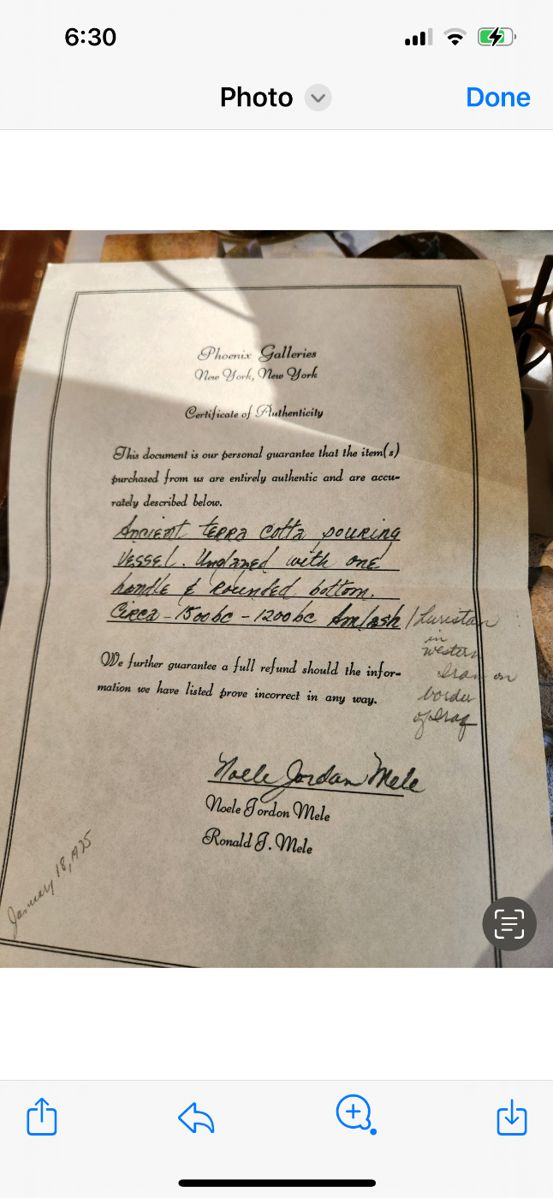 6:30
Photo
Done
Phoenix Galleries
New York, New York
Certificate of Authenticity
This document is our personal guarantee that the item(s)
purchased from us are entirely authentic and are accu-
rately described below.
Ancient terra cotta pouring
vessel. Unglazed with one
handle & rounded bottom.
Circa - 1500bc - 1200bc Amlash / Luristan
in
western
Iran on
border
of Iraq
We further guarantee a full refund should the infor-
mation we have listed prove incorrect in any way.
Noele Jordan Mele
Noele Jordon Mele
Ronald J. Mele
January 18, 1975